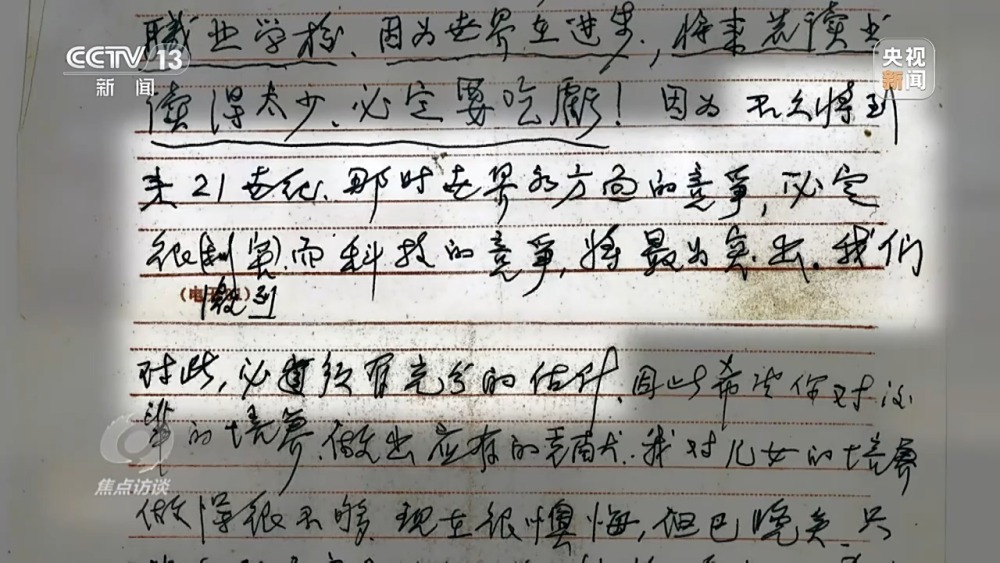 CCTV 13
新闻
央视
新闻
职业学校、因为世界在进步,将来若读书
读得太少、必定要吃亏!因为不久将到
来21世纪、那时世界各方面的竞争,必定
很激烈、而科技的竞争,将最为突出。我们
对此,必须有充分的估计、因此希望你对
辈的培养、做出应有的贡献。我对儿女的培养
做得很不够、现在很懊悔,但已晚矣、只
焦点访谈